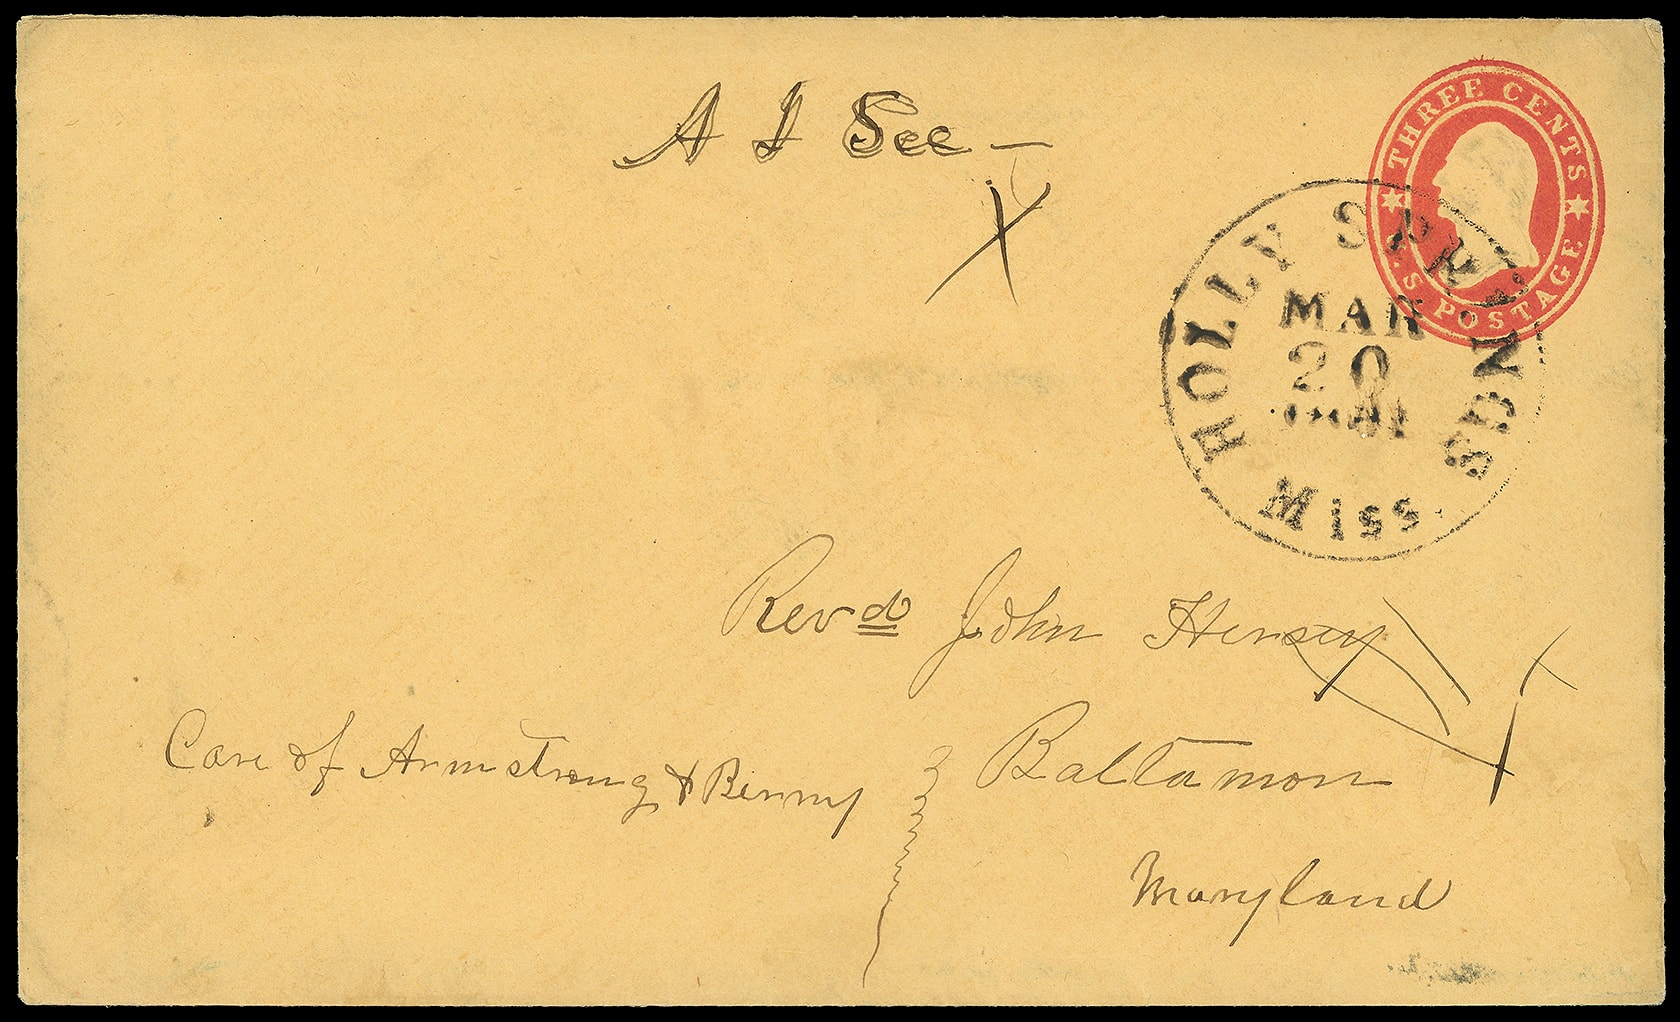 A I See —
X
THREE CENTS
U.S POSTAGE
HOLLY SPRINGS
MAR
20
Miss.
Rev d John Hersey
Care of Armstrong & Berry
Baltamon
Maryland